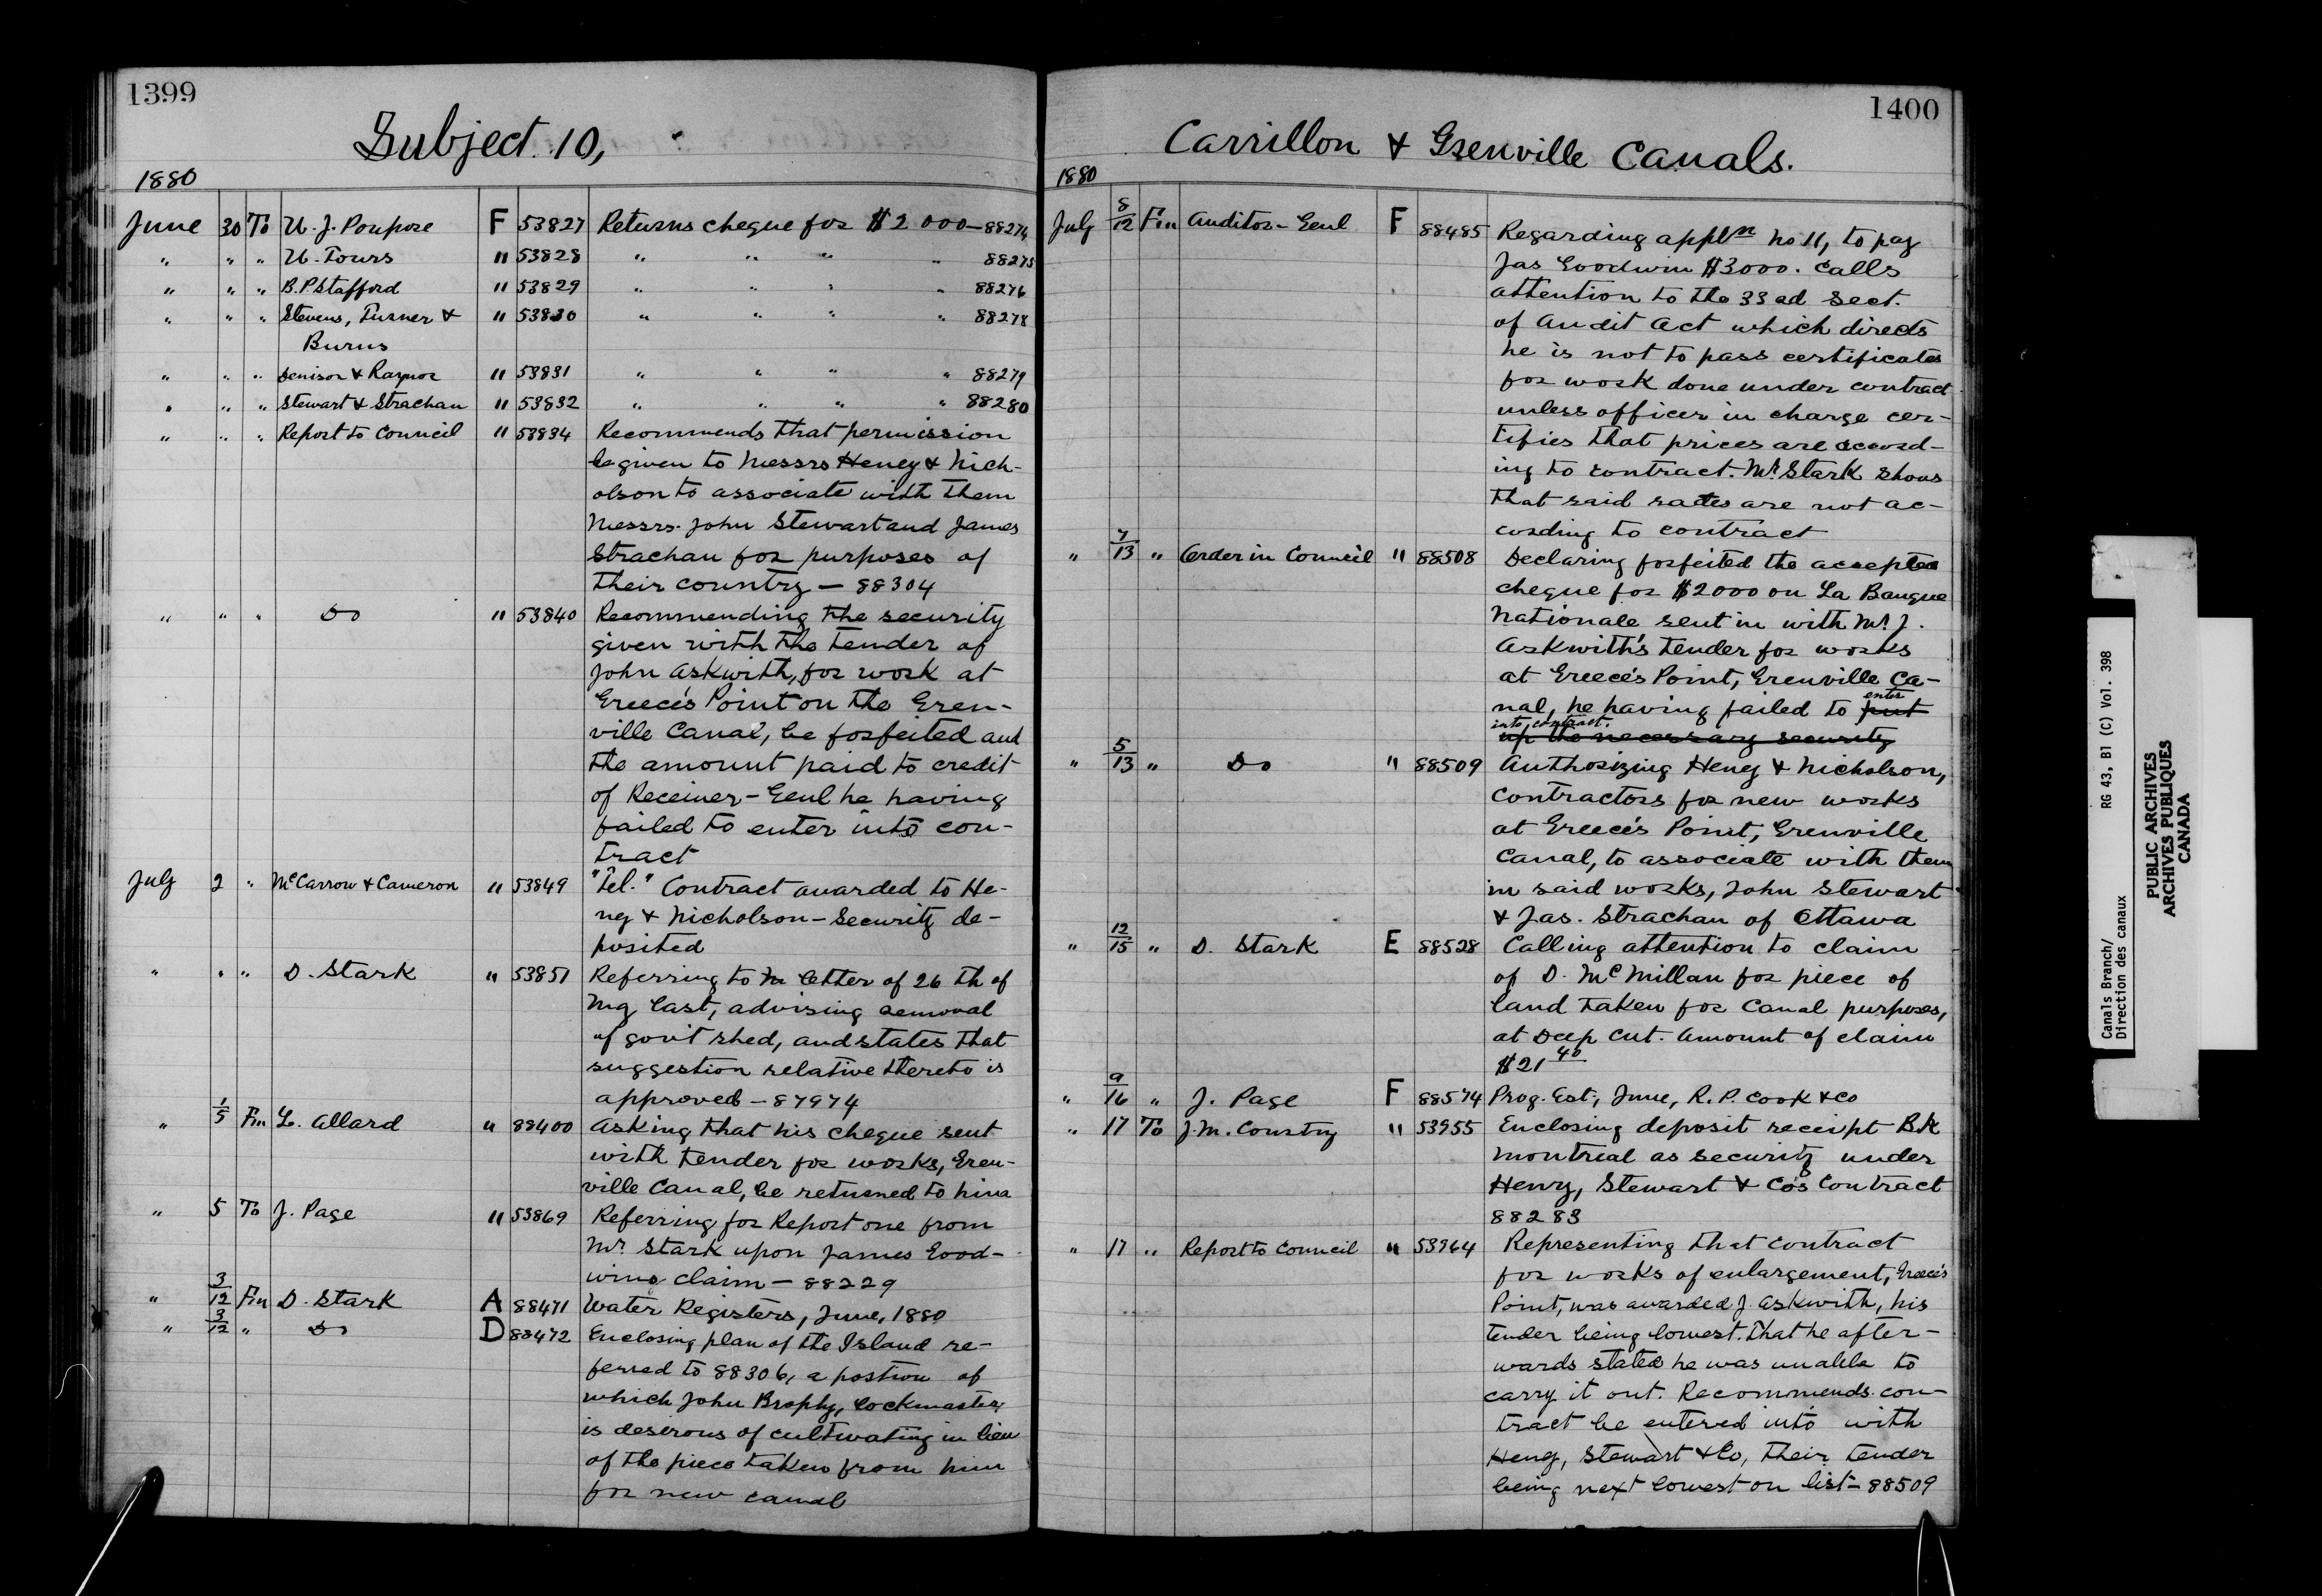 1399
Subject. 10,
1880
June 30 To U. J. Poupore F 53827 Returns cheque for $2 000 — 88274
" " " U. Tours " 53828 " " " " 88275
" " " B. P. Stafford " 53829 " " " " 88276
" " " Stevens, Turner & " 53830 " " " " 88278
Burns
" " " Denison & Raynor " 53831 " " " " 88279
" " " Stewart & Strachan " 53832 " " " " 88280
" " " Report to Council " 53834 Recommends that permission
be given to Messrs Heney & Nich-
olson to associate with them
Messrs. John Stewart and James
Strachan for purposes of
their country — 88304
" " " Do " 53840 Recommending the security
given with the tender of
John Askwith, for work at
Greece's Point on the Gren-
ville Canal, be forfeited and
the amount paid to credit
of Receiver-Genl he having
failed to enter into con-
tract
July 2 " McCarrow & Cameron " 53849 "Tel." Contract awarded to He-
ney & Nicholson — Security de-
posited
" " " D. Stark " 53851 Referring to letter of 26 th of
My last, advising removal
of gov't shed, and states that
suggestion relative thereto is
approved — 87974
" 1/5 Fm L. Allard " 88400 Asking that his cheque sent
with tender for works, Gren-
ville Canal, be returned to him
" 5 To J. Page " 53869 Referring for Report one from
Mr. Stark upon James Good-
wins claim — 88229
" 3/12 Fm D. Stark A 88471 Water Registers, June, 1880
" 3/12 " Do D 88472 Enclosing plan of the Island re-
ferred to 88306, a portion of
which John Brophy, Lockmaster,
is desirous of cultivating in lieu
of the piece taken from him
for new canal
1400
Carrillon & Grenville Canals.
1880
July 8/12 Fm Auditor-Genl F 88485 Regarding appln no 11, to pay
Jas Goodwin $3000. Calls
attention to the 33rd Sect.
of Audit Act which directs
he is not to pass certificates
for work done under contract
unless officer in charge cer-
tifies that prices are accord-
ing to contract. Mr. Stark shows
that said rates are not ac-
cording to contract
" 7/13 " Order in Council " 88508 Declaring forfeited the accepted
cheque for $2000 on La Banque
Nationale sent in with Mr. J.
Askwith's tender for works
at Greece's Point, Grenville Ca-
nal, he having failed to put enter
into contract. up the necessary security
" 5/13 " Do " 88509 Authorizing Heney & Nicholson,
contractors for new works
at Greece's Point, Grenville
Canal, to associate with them
in said works, John Stewart
& Jas. Strachan of Ottawa
" 12/15 " D. Stark E 88528 Calling attention to claim
of D. McMillan for piece of
land taken for Canal purposes,
at Deep Cut. Amount of claim
$21 40
" 9/16 " J. Page F 88574 Prog. Est., June, R. P. Cook & Co
" 17 To J. M. Courtny " 53955 Enclosing deposit receipt Bk
Montreal as security under
Henry, Stewart & Co's Contract
88283
" 17 " Report to Council " 53964 Representing that contract
for works of enlargement, Greece's
Point, was awarded J. Askwith, his
tender being lowest. That he after-
wards stated he was unable to
carry it out. Recommends con-
tract be entered into with
Heney, Stewart & Co, their tender
being next lowest on list — 88509
Canals Branch/ RG 43, B1 (C) Vol. 398
Direction des canaux
PUBLIC ARCHIVES
ARCHIVES PUBLIQUES
CANADA